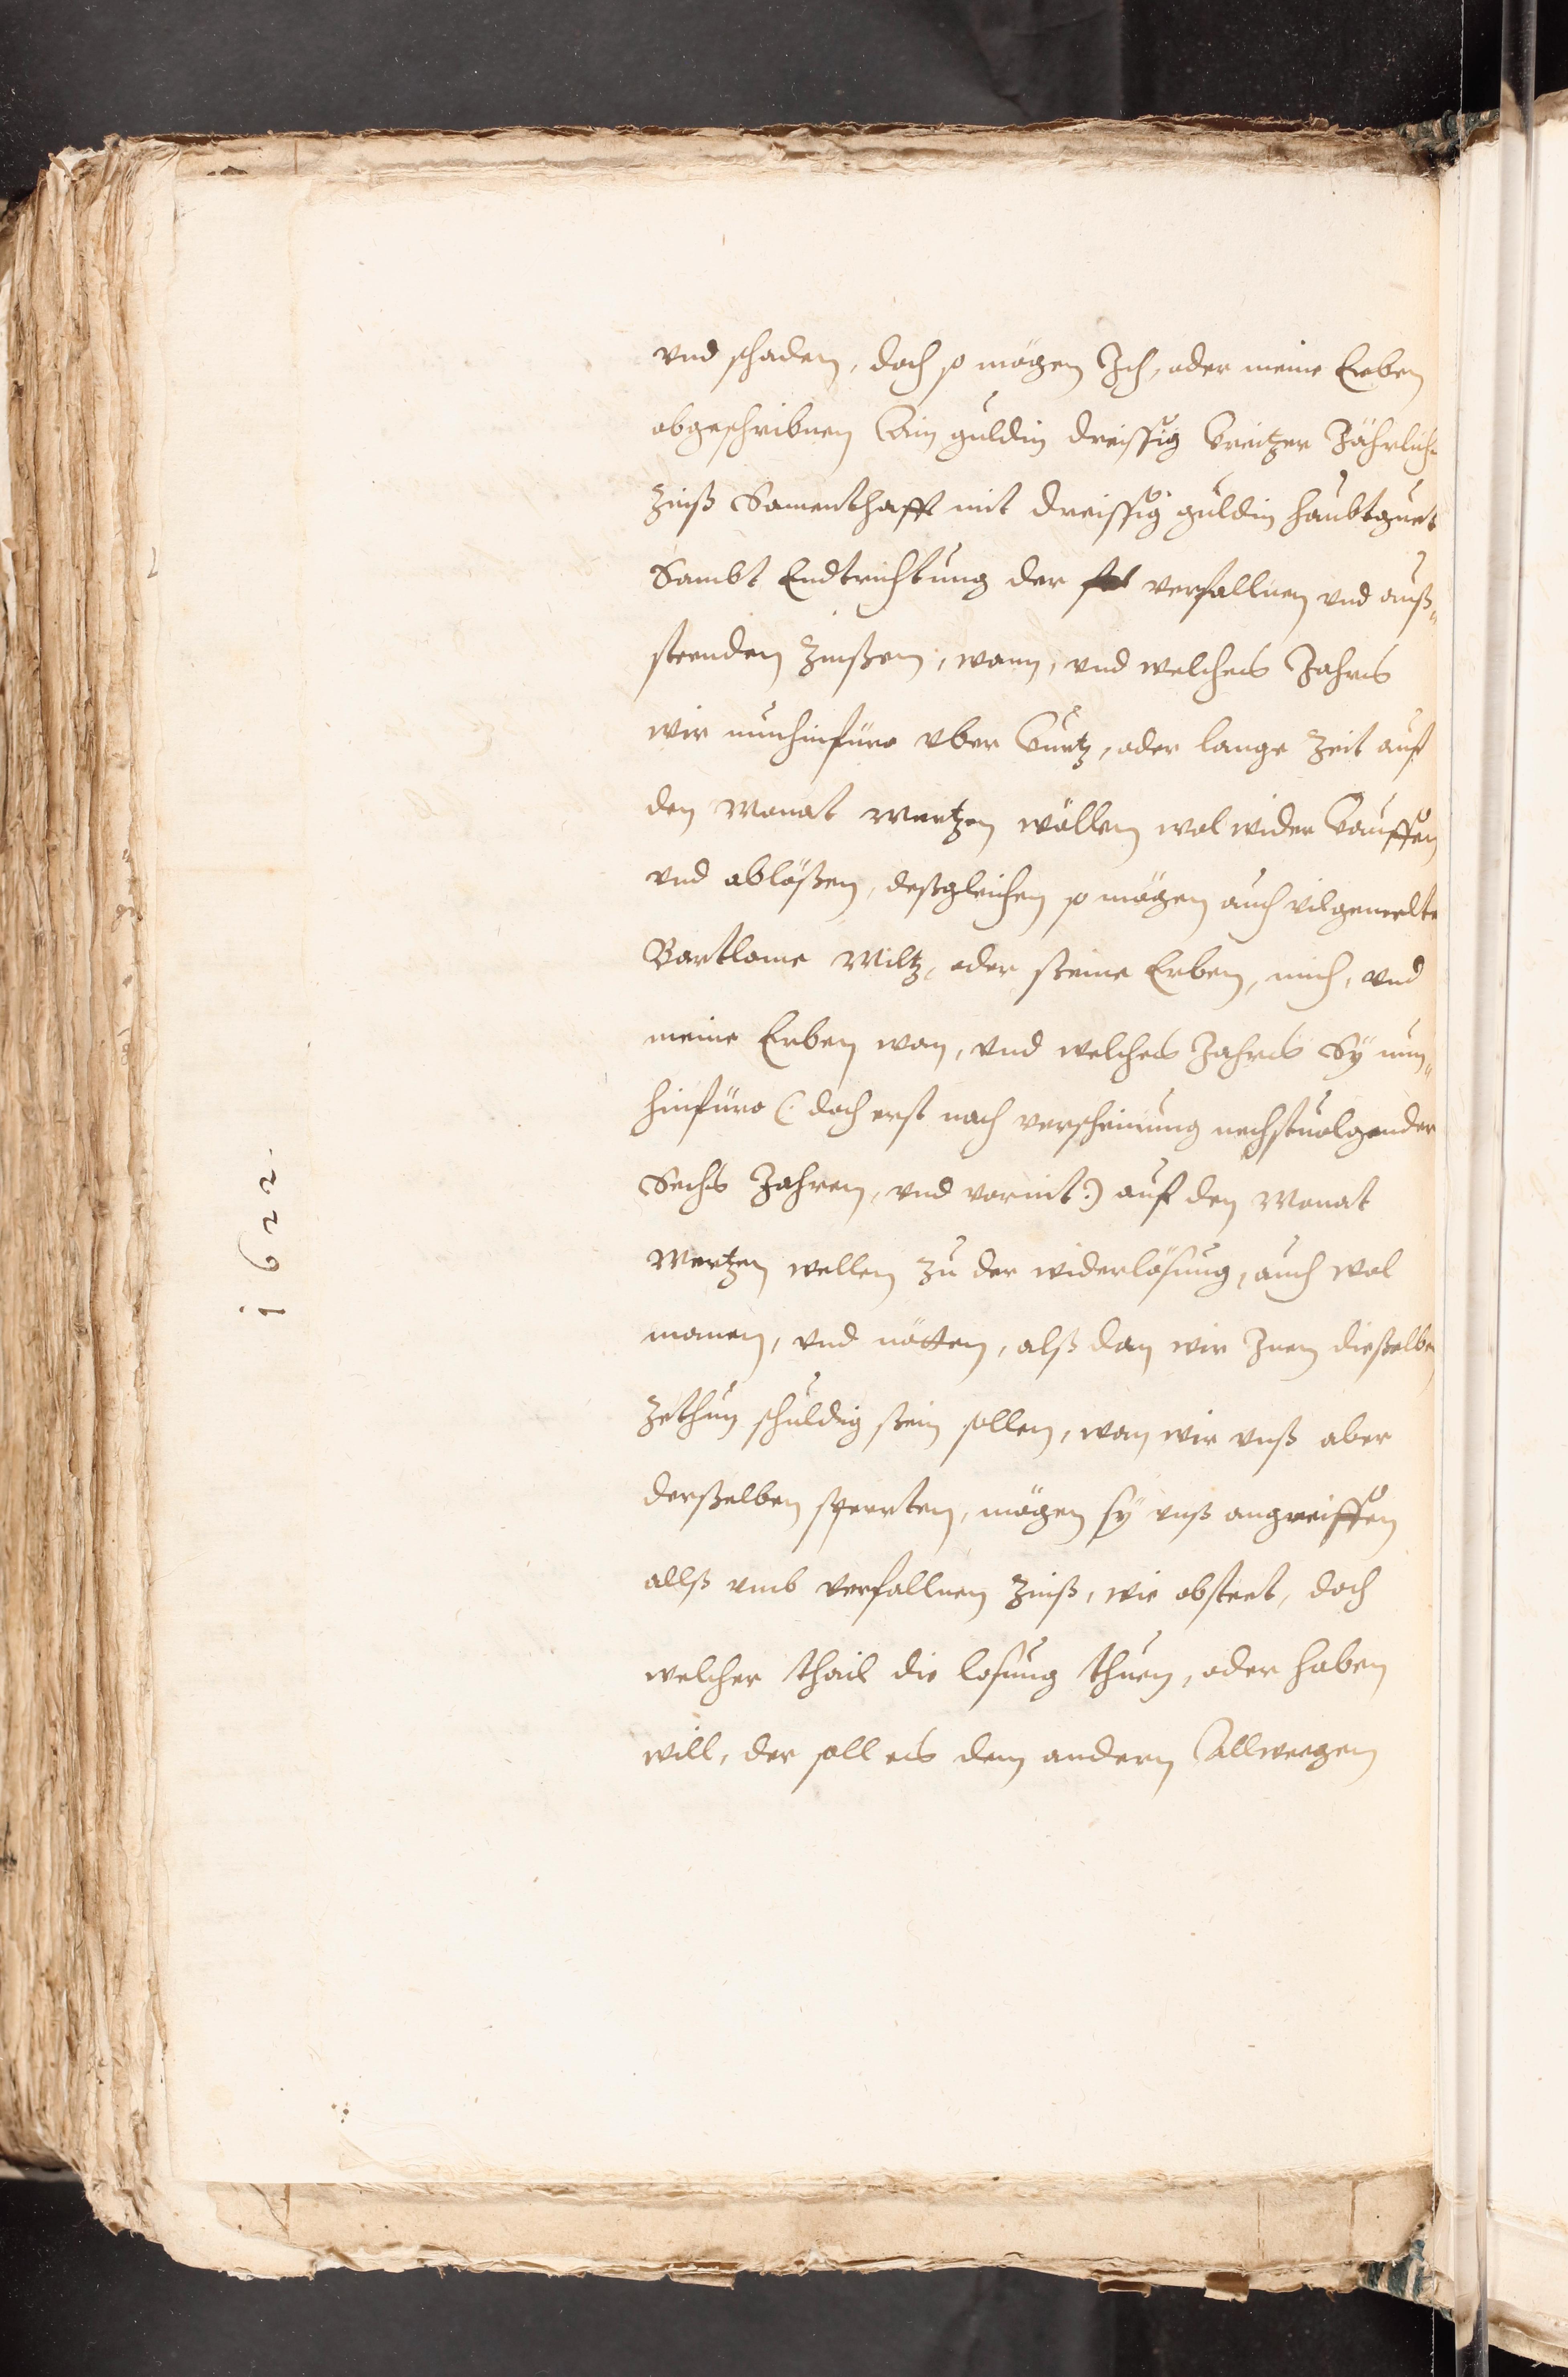 vnd schaden, doch so mögen Ich, oder meine Erben
obgeschribnen Ain guldin dreissig Creitzer Jährlichs
Zinß Samenthafft mit dreissig guldin haubtguet
Sambt Endtrichtung der verfallnen vnd auß„
steenden Zinßen, wann, vnd welches Jahrs
wir nunhinfüro vber Curtz, oder lange Zeit auf
den Monat Mertzen wöllen wol wider Cauffen
vnd ablößen, deßgleichen so mögen auch vilgemelte
Bartlome Miltz, oder seine Erben, mich, vnd
meine Erben wan, vnd welches Jahrs Sÿ nun„
hinfüro (: doch erst nach verscheinung nechstuolgender
Sechs Jahren, vnd vor nit :) auf den Monat
Mertzen wellen zu der widerlösung, auch wol
manen, vnd nötten, alß dan wir Inen dieselbe
Zethun schuldig sein sollen, wan wir vnß aber
derselben sperten, mögen sÿ vnß angreiffen
allß vmb verfallnen Zinß, wie obsteet, doch
welcher thail die losung thuen, oder haben
will, der soll es dem andern Allweegen
1622.